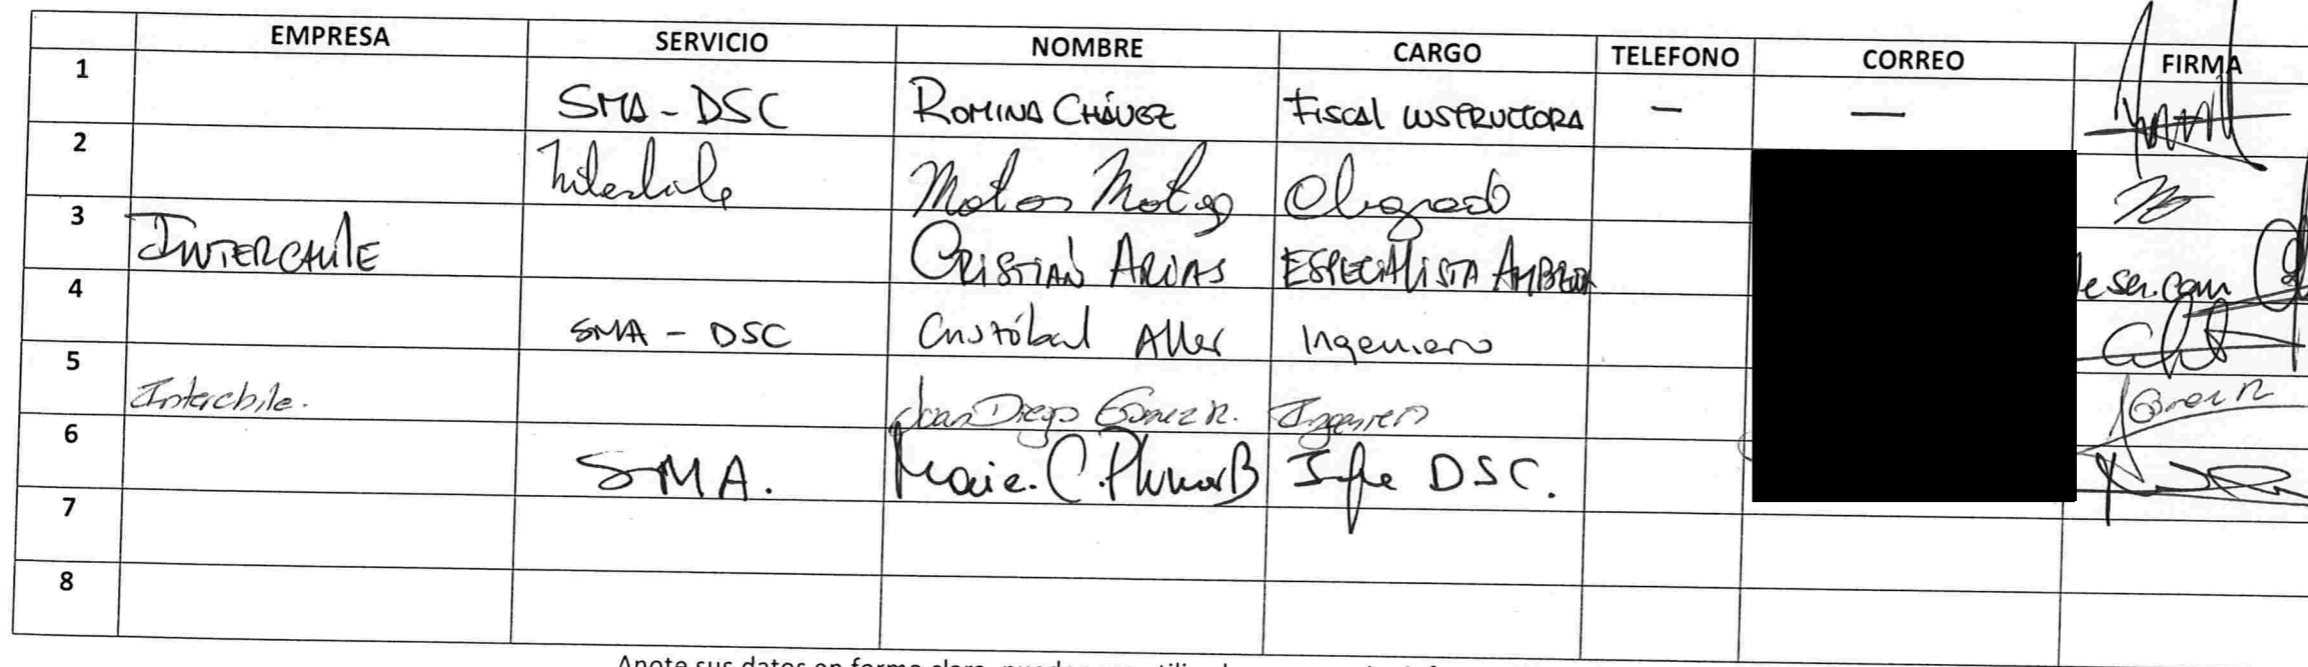 EMPRESA SERVICIO NOMBRE CARGO TELEFONO CORREO FIRMA
1 SMA - DSC ROMINA CHÁVEZ FISCAL INSTRUCTORA — —
2 Interchile Abogado
3 INTERCHILE CRISTIAN ARIAS ESPECIALISTA
4 SMA - DSC Cristóbal Ingeniero
5 Interchile. Juan Diego Gomez R. Ingeniero
6 SMA. DSC.
7
8